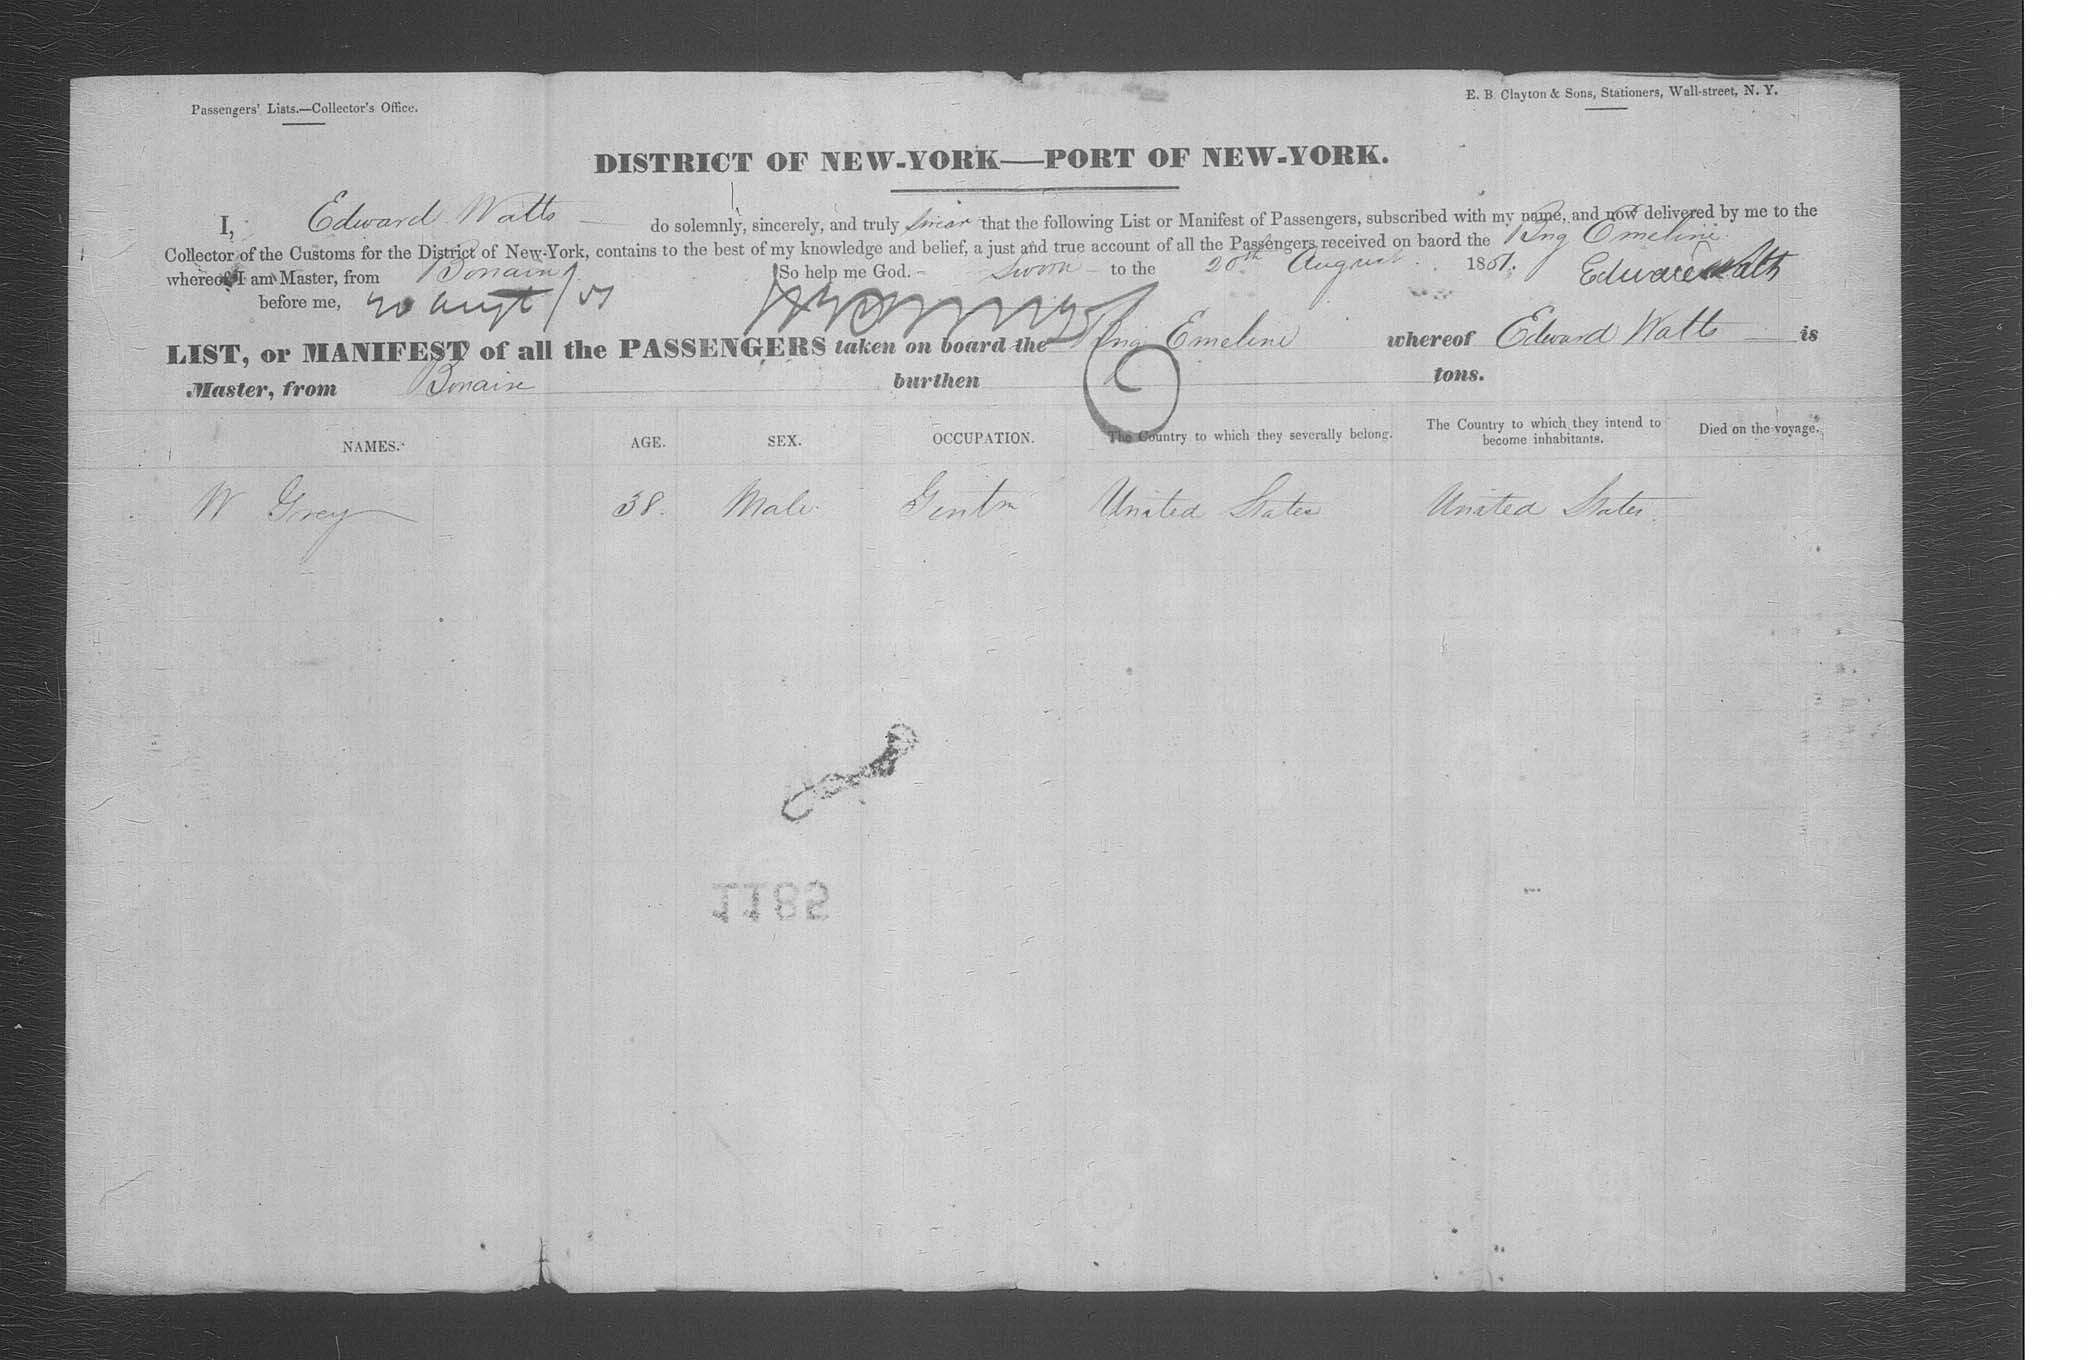 Passengers' Lists.—Collector's Office.
E. B. Clayton & Sons, Stationers, Wall-street, N. Y.
DISTRICT OF NEW-YORK—PORT OF NEW-YORK.
I, Edward Watts do solemnly, sincerely, and truly swear that the following List or Manifest of Passengers, subscribed with my name, and now delivered by me to the
Collector of the Customs for the District of New-York, contains to the best of my knowledge and belief, a just and true account of all the Passengers received on baord the Brig Emeline
whereof I am Master, from Bonaire So help me God. Sworn to the 20th August 1851. Edward Watts
before me, 20 Augt /51
LIST, or MANIFEST of all the PASSENGERS taken on board the Brig Emeline whereof Edward Watts is
Master, from Bonaire burthen tons.
NAMES. AGE. SEX. OCCUPATION. The Country to which they severally belong. The Country to which they intend to become inhabitants. Died on the voyage.
W Grey 38. Male Gentn United States United States
1185